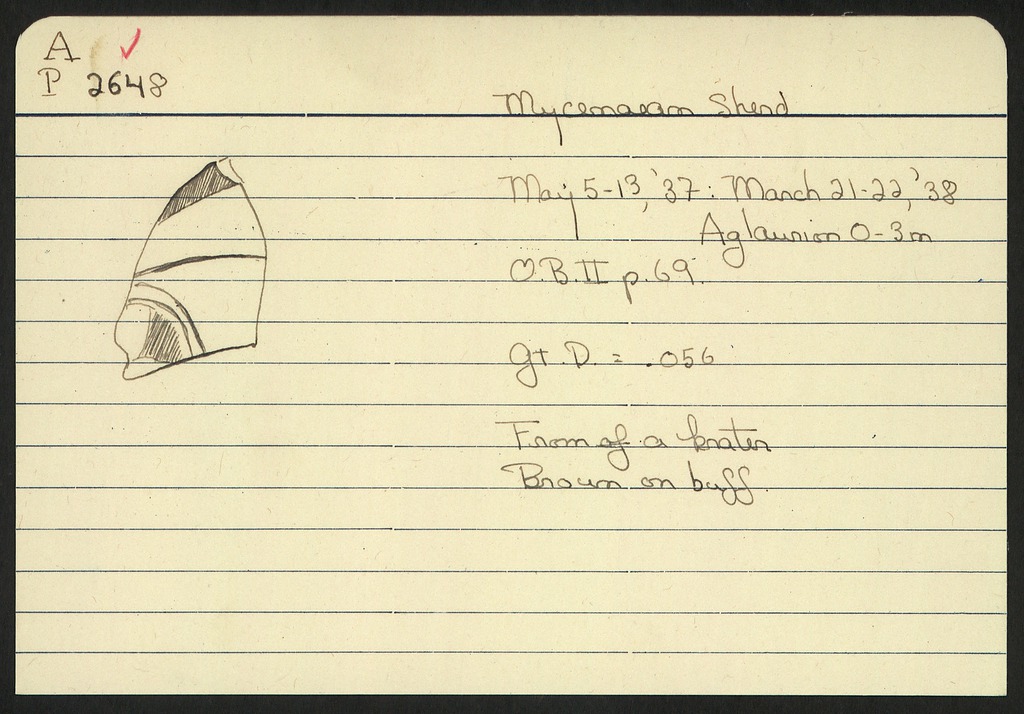 A ✓
P 2648
Mycenaean Sherd
May 5-13, '37 : March 21-22, '38
Aglaurion 0-3m
O.B. II p. 69.
Gt. D. = .056
From of a krater
Brown on buff.